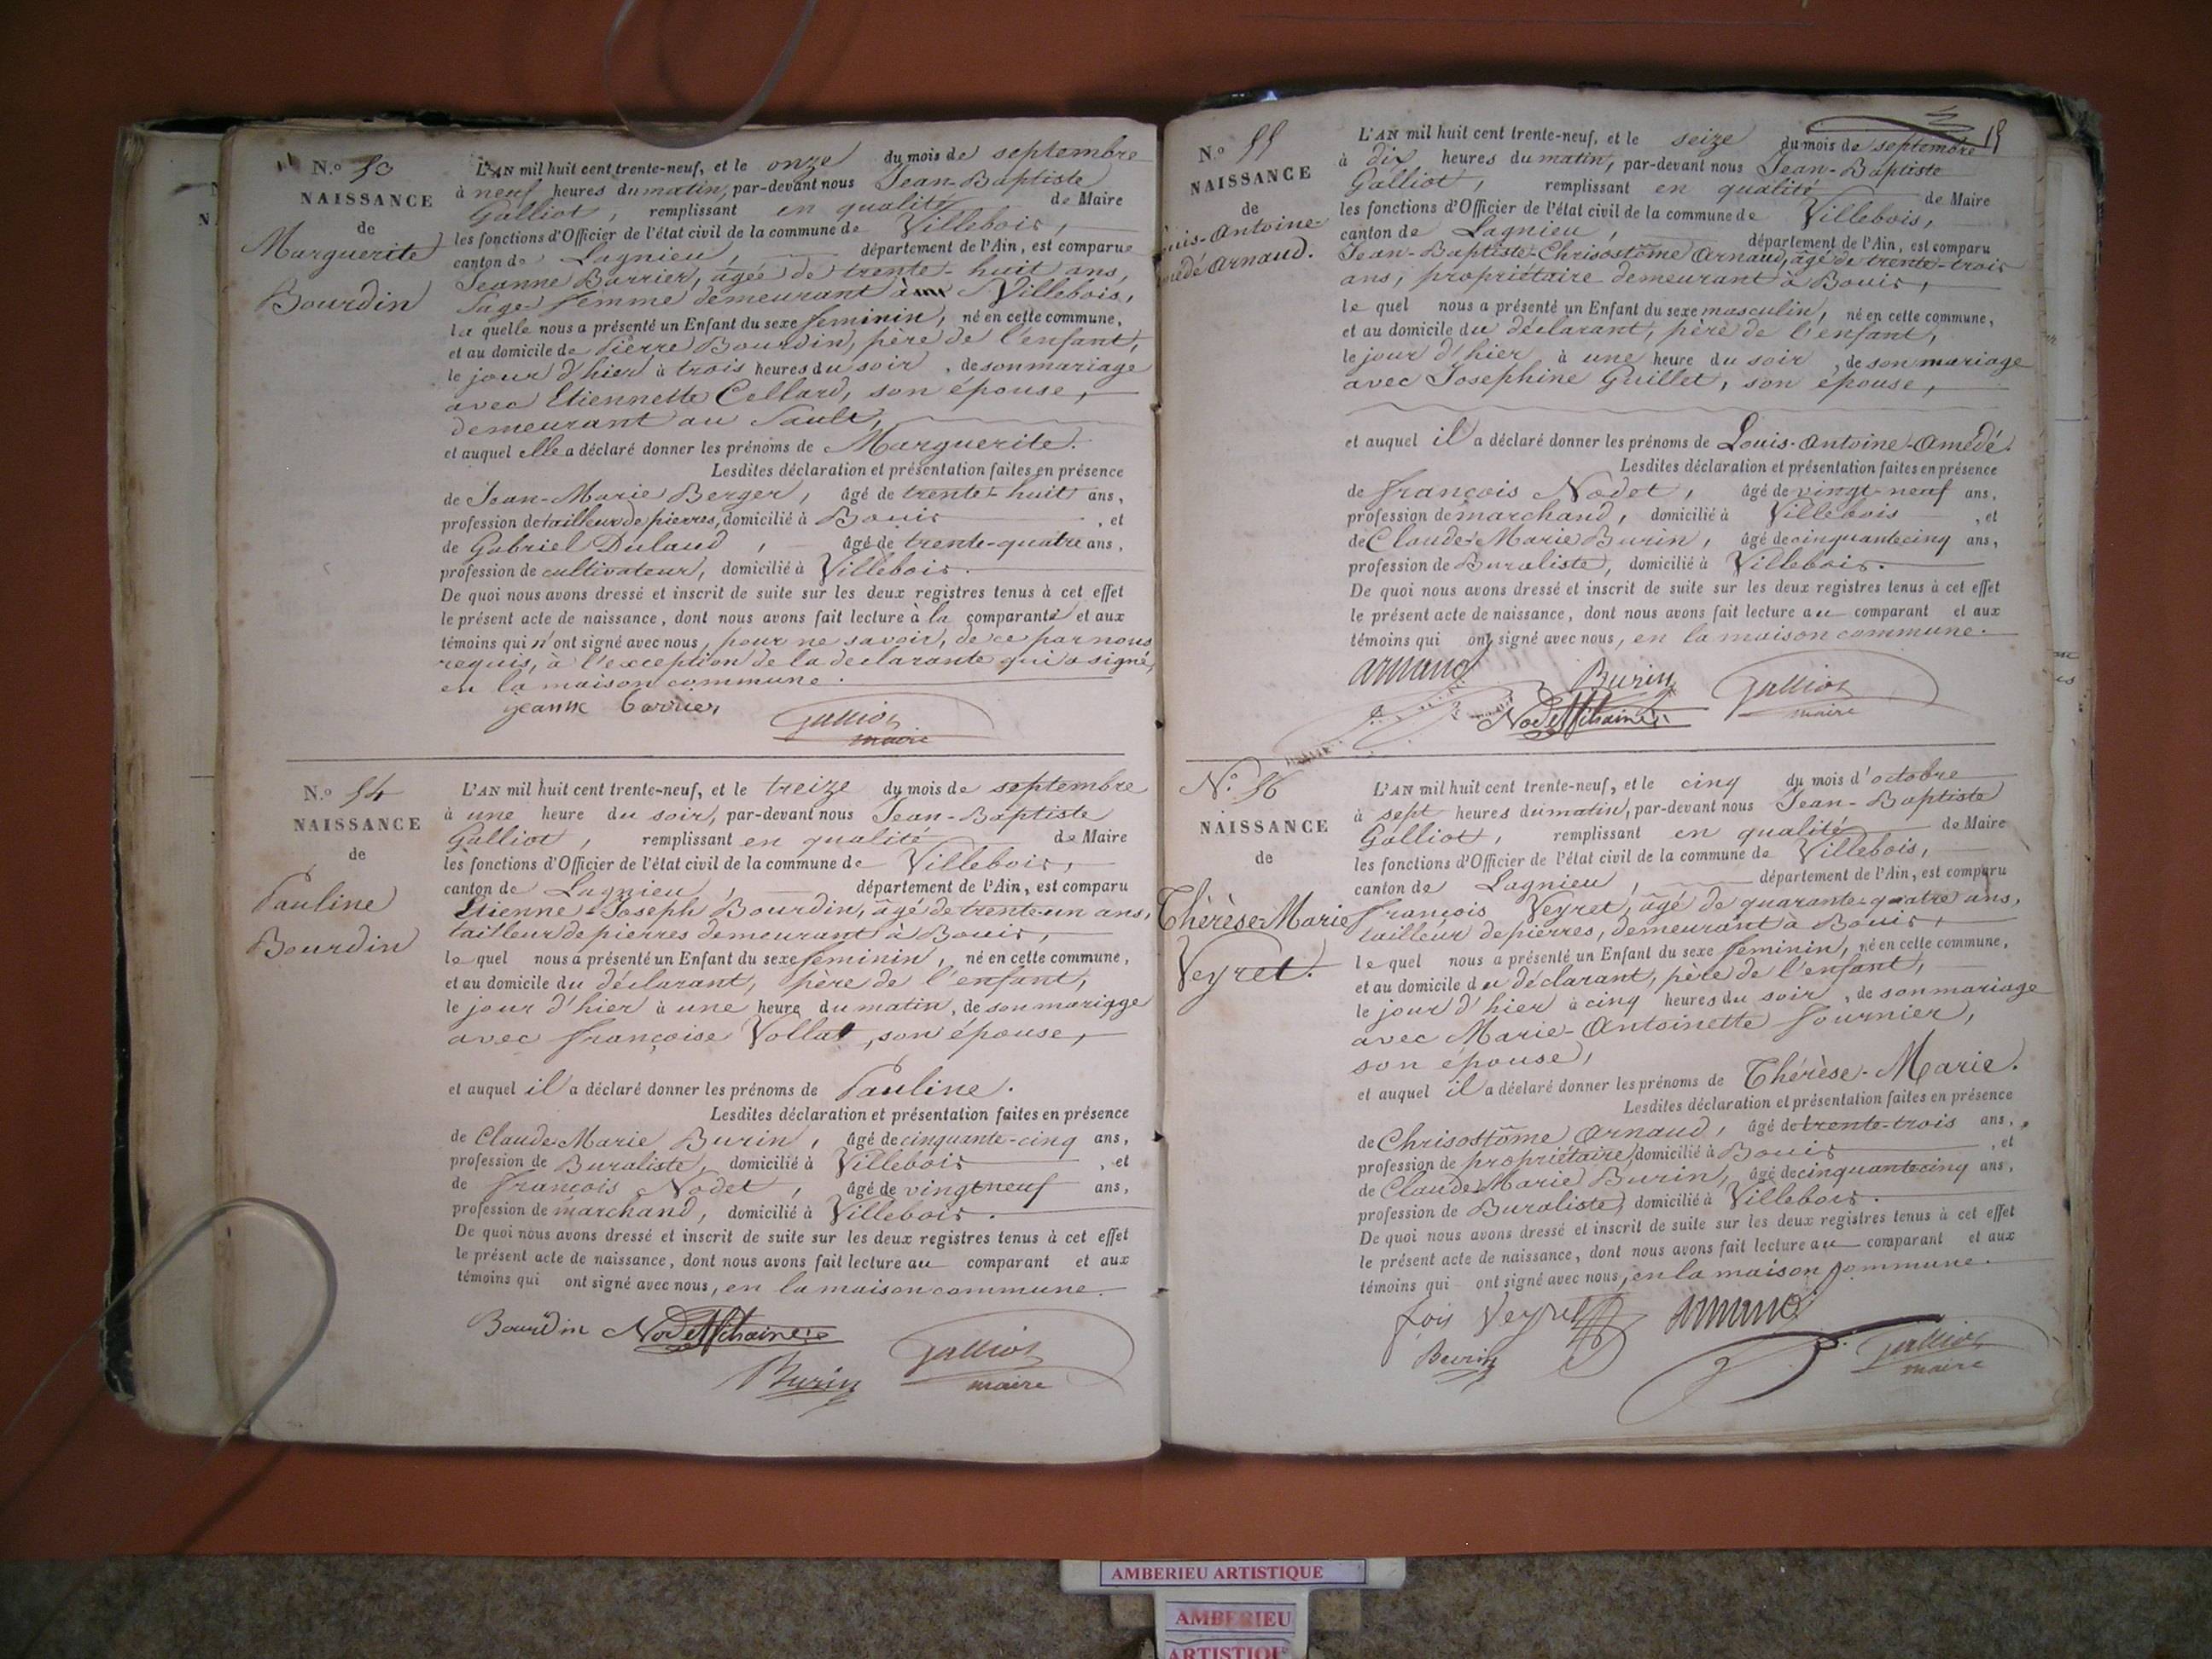 N.o 53
NAISSANCE
de
Marguerite
Bourdin
L'AN mil huit cent trente-neuf, et le onze du mois de septembre
à neuf heures du matin, par-devant nous Jean-Baptiste
Galliot, remplissant en qualité de Maire
les fonctions d'Officier de l'état civil de la commune de Villebois,
canton de Lagnieu, département de l'Ain, est comparue
Jeanne Barrier, âgée de trente-huit ans,
Sage-femme demeurant à Villebois,
la quelle nous a présenté un Enfant du sexe feminin, né en cette commune,
et au domicile de Pierre Bourdin, père de l'enfant,
le jour d'hier à trois heures du soir, de son mariage
avec Etiennette Cellard, son épouse,
demeurant au Sault,
et auquel elle a déclaré donner les prénoms de Marguerite.
Lesdites déclaration et présentation faites en présence
de Jean-Marie Berger, âgé de trente-huit ans,
profession de tailleur de pierres, domicilié à Bouis, et
de Gabriel Dulaud, âgé de trente-quatre ans,
profession de cultivateur, domicilié à Villebois.
De quoi nous avons dressé et inscrit de suite sur les deux registres tenus à cet effet
le présent acte de naissance, dont nous avons fait lecture à la comparante et aux
témoins qui n'ont signé avec nous, pour ne savoir, de ce par nous
requis, à l'exception de la declarante qui a signé,
en la maison commune.
jeanne barrier
Galliot
maire
N.o 54
NAISSANCE
de
Pauline
Bourdin
L'AN mil huit cent trente-neuf, et le treize du mois de septembre
à une heure du soir, par-devant nous Jean-Baptiste
Galliot, remplissant en qualité de Maire
les fonctions d'Officier de l'état civil de la commune de Villebois,
canton de Lagnieu, département de l'Ain, est comparu
Etienne-Joseph Bourdin, âgé de trente-un ans,
tailleur de pierres demeurant à Bouis,
le quel nous a présenté un Enfant du sexe feminin, né en cette commune,
et au domicile du déclarant, père de l'enfant,
le jour d'hier à une heure du matin, de son mariage
avec françoise Vollat, son épouse,
et auquel il a déclaré donner les prénoms de Pauline.
Lesdites déclaration et présentation faites en présence
de Claude-Marie Burin, âgé de cinquante-cinq ans,
profession de Buraliste, domicilié à Villebois, et
de françois Nodet, âgé de vingt neuf ans,
profession de marchand, domicilié à Villebois.
De quoi nous avons dressé et inscrit de suite sur les deux registres tenus à cet effet
le présent acte de naissance, dont nous avons fait lecture au comparant et aux
témoins qui ont signé avec nous, en la maison commune.
Bourdin Nodet
Burin
Galliot
maire
15
N.o 55
NAISSANCE
de
Louis-Antoine
Amedé Arnaud.
L'AN mil huit cent trente-neuf, et le seize du mois de septembre
à dix heures du matin, par-devant nous Jean-Baptiste
Galliot, remplissant en qualité de Maire
les fonctions d'Officier de l'état civil de la commune de Villebois,
canton de Lagnieu, département de l'Ain, est comparu
Jean-Baptiste-Chrisostôme Arnaud, âgé de trente-trois
ans, propriétaire demeurant à Bouis,
le quel nous a présenté un Enfant du sexe masculin, né en cette commune,
et au domicile du déclarant, père de l'enfant,
le jour d'hier à une heure du soir, de son mariage
avec Josephine Guillet, son épouse,
et auquel il a déclaré donner les prénoms de Louis-Antoine-Amedé.
Lesdites déclaration et présentation faites en présence
de françois Nodet, âgé de vingt-neuf ans,
profession de marchand, domicilié à Villebois, et
de Claude-Marie Burin, âgé de cinquante cinq ans,
profession de Buraliste, domicilié à Villebois.
De quoi nous avons dressé et inscrit de suite sur les deux registres tenus à cet effet
le présent acte de naissance, dont nous avons fait lecture au comparant et aux
témoins qui ont signé avec nous, en la maison commune.
Arnaud Burin
Nodet
Galliot
maire
N.o 56
NAISSANCE
de
Thérèse-Marie
Veyret.
L'AN mil huit cent trente-neuf, et le cinq du mois d'octobre
à sept heures du matin, par-devant nous Jean-Baptiste
Galliot, remplissant en qualité de Maire
les fonctions d'Officier de l'état civil de la commune de Villebois,
canton de Lagnieu, département de l'Ain, est comparu
françois Veyret, âgé de quarante-quatre ans,
tailleur de pierres, demeurant à Bouis,
le quel nous a présenté un Enfant du sexe feminin, né en cette commune,
et au domicile du déclarant, père de l'enfant,
le jour d'hier à cinq heures du soir, de son mariage
avec Marie-Antoinette fournier,
son épouse,
et auquel il a déclaré donner les prénoms de Thérèse-Marie.
Lesdites déclaration et présentation faites en présence
de Chrisostôme Arnaud, âgé de trente-trois ans,
profession de propriétaire, domicilié à Bouis, et
de Claude-Marie Burin, âgé de cinquante cinq ans,
profession de Buraliste, domicilié à Villebois.
De quoi nous avons dressé et inscrit de suite sur les deux registres tenus à cet effet
le présent acte de naissance, dont nous avons fait lecture au comparant et aux
témoins qui ont signé avec nous, en la maison commune.
fois Veyret Arnaud
Burin
Galliot
maire
AMBERIEU ARTISTIQUE
AMBERIEU
ARTISTIQUE